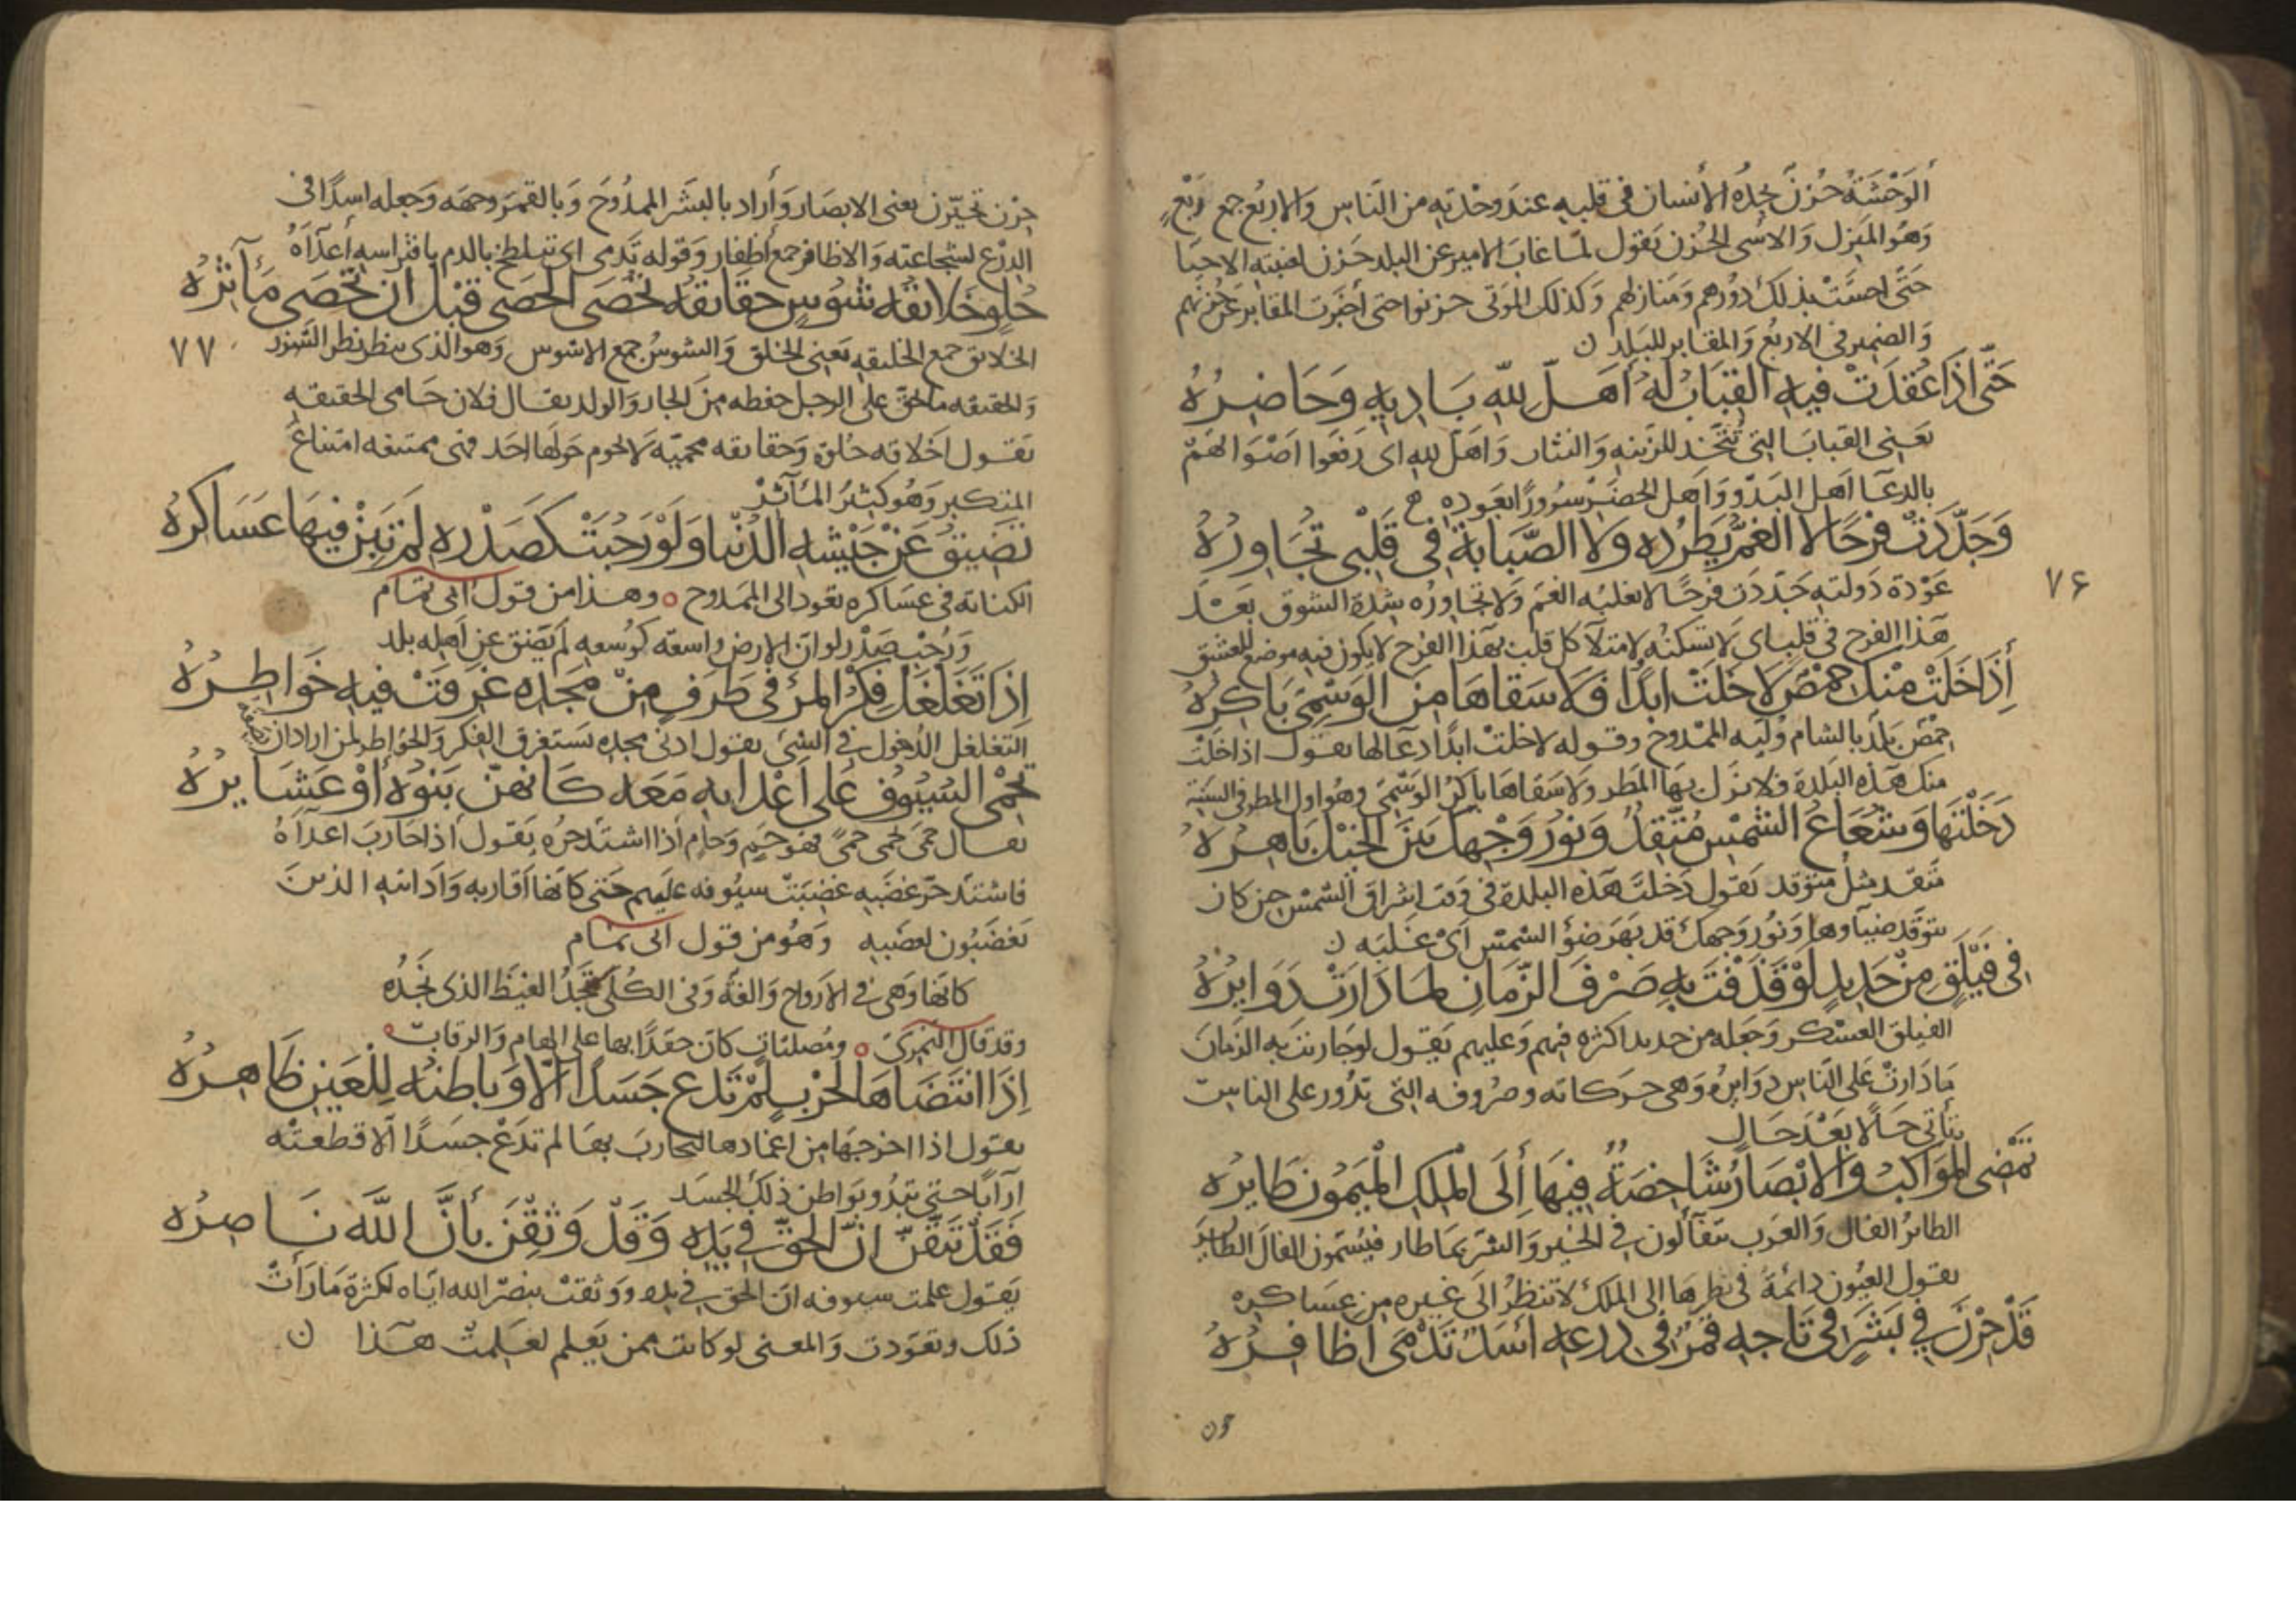 الوَحْشَةُ حُزنٌ يجدُه الأنسان في قلبه عند وحْدته من النَاس والاربُع جمع رَبْع
وَهوُ المنِزل وَالاسَى الحُزن يَقول لمّا غابَ الامير عن البلد حَزن لغيبته الاحيَا
حَتَّى احسَّتْ بذلك دوُرهم وَمنازلهم وَكذلك الموَتى حزنوا حتى أخبَرت المقابر عَن حُزنهم
وَالضمير في الاربُع وَالمقابر للبَلد ن
حَتَّى اذَا عُقدَتْ فيهِ القِبَابُ لَهُ أهَلَّ للهِ بَادِيهِ وَحَاضِرُهُ
يَعَنِي القبابَ التي تُتّخَذ للزّينه وَالنثار وَاهَلّ للهِ اى رَفعَوا اصْوَاتهُمْ
بالدعَا اَهل البَدْو وَاهَل الحضَر سرُورًا بعَوده
وَجَدَّدَتْ فَرَحًا لا الغمُّ يَطرُده وَلا الصّبَابَة في قَلْبي تُجَاورُهُ
٧۶
عَوْدة دَولته جَدّدَت فرحًا لا يغلبُه الغمّ وَلا تجاورُه شدة الشوق بَعَدَ
هَذا الفرح في قلبٍ اى لا تسكنُه لامتلآ كل قلب بهَذا الفرح لا يكون فيه موضع للعشق
أِذَا خَلَتْ مِنْكَ حمْصٌ لَا خَلَتْ ابدًا فَلَا سَقاهَا مِنَ الوَسْمِيّ بَاكِرُهُ
حِمْص بَلَد بالشام وُلِيه الممْدوُح وقوله لاخلتْ ابدًا دعآ لها يقول اذا خلَتْ
منك هَذه البَلدة فلا نزَل بهَا المَطر ولَا سَقاهَا باَكِرُ الوَسْمِيّ وهُو اول المطر في السَنِة
دَخَلْتَهَا وَشُعَاعُ الشَمْسِ مُتَّقِدُ وَنوُرُ وَجْهِكَ بَيْنَ الخَيْلِ بَاهِرُهُ
متّقد مثل متوّقد يَقول دَخلتَ هَذه البلدة في وَقت اشراق الشّمْس حين كان
يتوَقّد ضيآوها وَنوُر وَجهك قد بهَر ضَوْ الشمْس اَىْ غَلبَه ن
في فَيْلَقٍ مِنْ حَدِيدٍ لَوْ قَذَفْتَ بِهِ صَرْفَ الزّمَانِ لمَا دَارَتْ دَوَايرُهُ
الفيلق العسْكر وَجعَله من حديد لكثره فيهم وَعليهم يَقول لوحَاربت به الزمَان
مَا دَارتْ عَلى الناس دوَايرُه وَهى حرَكاته وصرُوفه التى تدُور على الناس
يتأتي حَالًا بَعْدَ حَالٍ
تَمْضِى المَوَاكبُ وَالابْصَارُ شَاخِصَةٌ فِيهَا أِلَى المْلِك المْيَمُونِ طَايرُهُ
الطايرُ الفال وَالعرَب تتفَآلون في الخَير وَالشر بمَا طار فيُسَمّون الفال الطايرَ
يقول العيُون دائمةُ في نظرها الى الملك لا تنظُرُ الَى غيره من عسَاكره
قَدْ حِرْنَ في بَشَرٍ في تَاجِهِ قَمَرٌ في دِرْعِهِ اَسَدٌ تَدْمَى اظَافِرُهُ
حِرْن تحيَّرن يعنى الابصَار وَأراد بالبشَر الممدُوحَ وَبالقمَر وجهَه وَجعله اسدًا في
الدِرْع لشجاعته وَالاظافر جمع أظفار وَقوله تَدْمى اى تتلطّخ بالدم بافتراسه أعدَآءَهُ
حُلوٍ خَلايقُه شُوْسٍ حقَايقُه تُحْصَى الحَصَى قبْلَ ان تُحْصَى مَآثِرُهُ
الخلايق جمع الخليقه يَعني الخلق وَالشوسُ جمع الاشوس وَهو الذى ينظر نظر الشَزر
٧٧
وَالحقيقه ما يحقّ على الرجل حفظه مِنَ الجار وَالولد يقال فلان حَامى الحقيقه
يَقول اَخلاقه حُلوَة وَحقايقه محميّة لَا يحوم حَولهَا احَد فهى ممتنعه امتناعَ
المتكبر وَهُو كثيرُ المَآثِرْ
تَضيقُ عَنْ جَيْشِهِ الدُنْيا وَلَوْ رَحُبَتْ كَصَدْرِهِ لَمْ تَبِنْ فِيهَا عَسَاكرُهُ
الكنايه في عسَاكره تعَود الى الممَدوح وهذا من قول ابى تمام
وَرُحْب صَدْر لو انّ الارض واسعَه كوُسعه لَم يَضق عن اَهله بلد
اِذَا تَغَلغَلَ فِكْرُ المرْئِ في طَرَفٍ مِنْ مَجدِهِ غَرِقَتْ فيهِ خَوَاطِرُهُ
التغلغل الدُخول في الشئ يقول ادنى مجده يَستغرق الفكر وَالخوَاطر لمن اراد ان
تَحْمَى السُيُوُف عَلَى اَعْدَايهِ مَعَه كَانهُنّ بَنوُهُ أوْ عَشَايرُهُ
يقال حمَى يَحمى حَميًا فهوَ حَمِيم وَحامٍ أذا اشتدّ حرُه يَقول أذا حَاربَ اعدآءَهُ
فاشتدّ حرّ غضَبه غضبَتْ سيُوفه عليهم حتى كانهَا اَقاربه وَاَدانيه الذينَ
يَغضَبُون لغضَبه وَهُو من قول ابى تمام
كانهَا وَهى في الاَرواح وَالغةُ وَفي الكُلَى تجَدُ الغيَظَ الذى نَجدُه
وقد قال النميرَىّ ومُصلتَات كانّ حقدًا بها على الهام وَالرقابِ
اِذَا انتَضَاهَا لِحَرْبٍ لَمْ تَدَعْ جَسَدًا اِلّا وَبَاطِنُه لِلْعَينِ ظَاهِرُهُ
يقول اذا اخرجهَا من اغمادها ليحاربَ بهَا لم تدَعْ جسَدًا الّا قطعَتْه
اِرَابًا حتى تبدُو بَواطن ذلَك الجسَد
فَقَدْ تَيَقَّنَّ اَنّ الحَقَّ في يَدِهِ وَقَدْ وَثِقْنَ بِأَنَّ اللَّهَ نَاصِرُهُ
يَقول علمت سيوفه انّ الحَق في يده ووَثقتْ بنصْر الله ايَاه لكثرة مَا رَأتْ
ذلك وتعَوّدت وَالمعنى لو كانت ممن يَعلم لعَلِمتْ هَذا ن